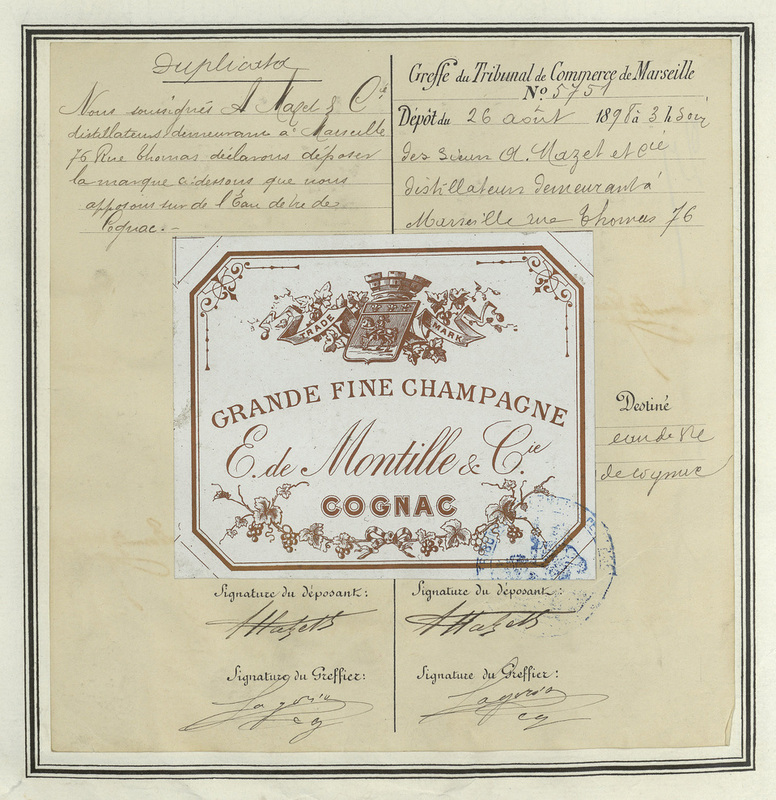 Duplicata
Nous soussignés A Mazet & Cie
distillateurs demeurant à Marseille
76 Rue Thomas déclarons déposer
la marque ci dessous que nous
apposons sur de l'Eau de vie de
Cognac.-
Greffe du Tribunal de Commerce de Marseille
No 5751
Dépôt du 26 août 1898 à 3 h Soir
des Sieurs A. Mazet et Cie
distillateurs demeurant à
Marseille rue Thomas 76
TRADE MARK
GRANDE FINE CHAMPAGNE
E. de Montille & Cie
COGNAC
Destiné
eau de vie
de cognac
Signature du déposant:
AMazet
Signature du Greffier:
Signature du déposant:
AMazet
Signature du Greffier: